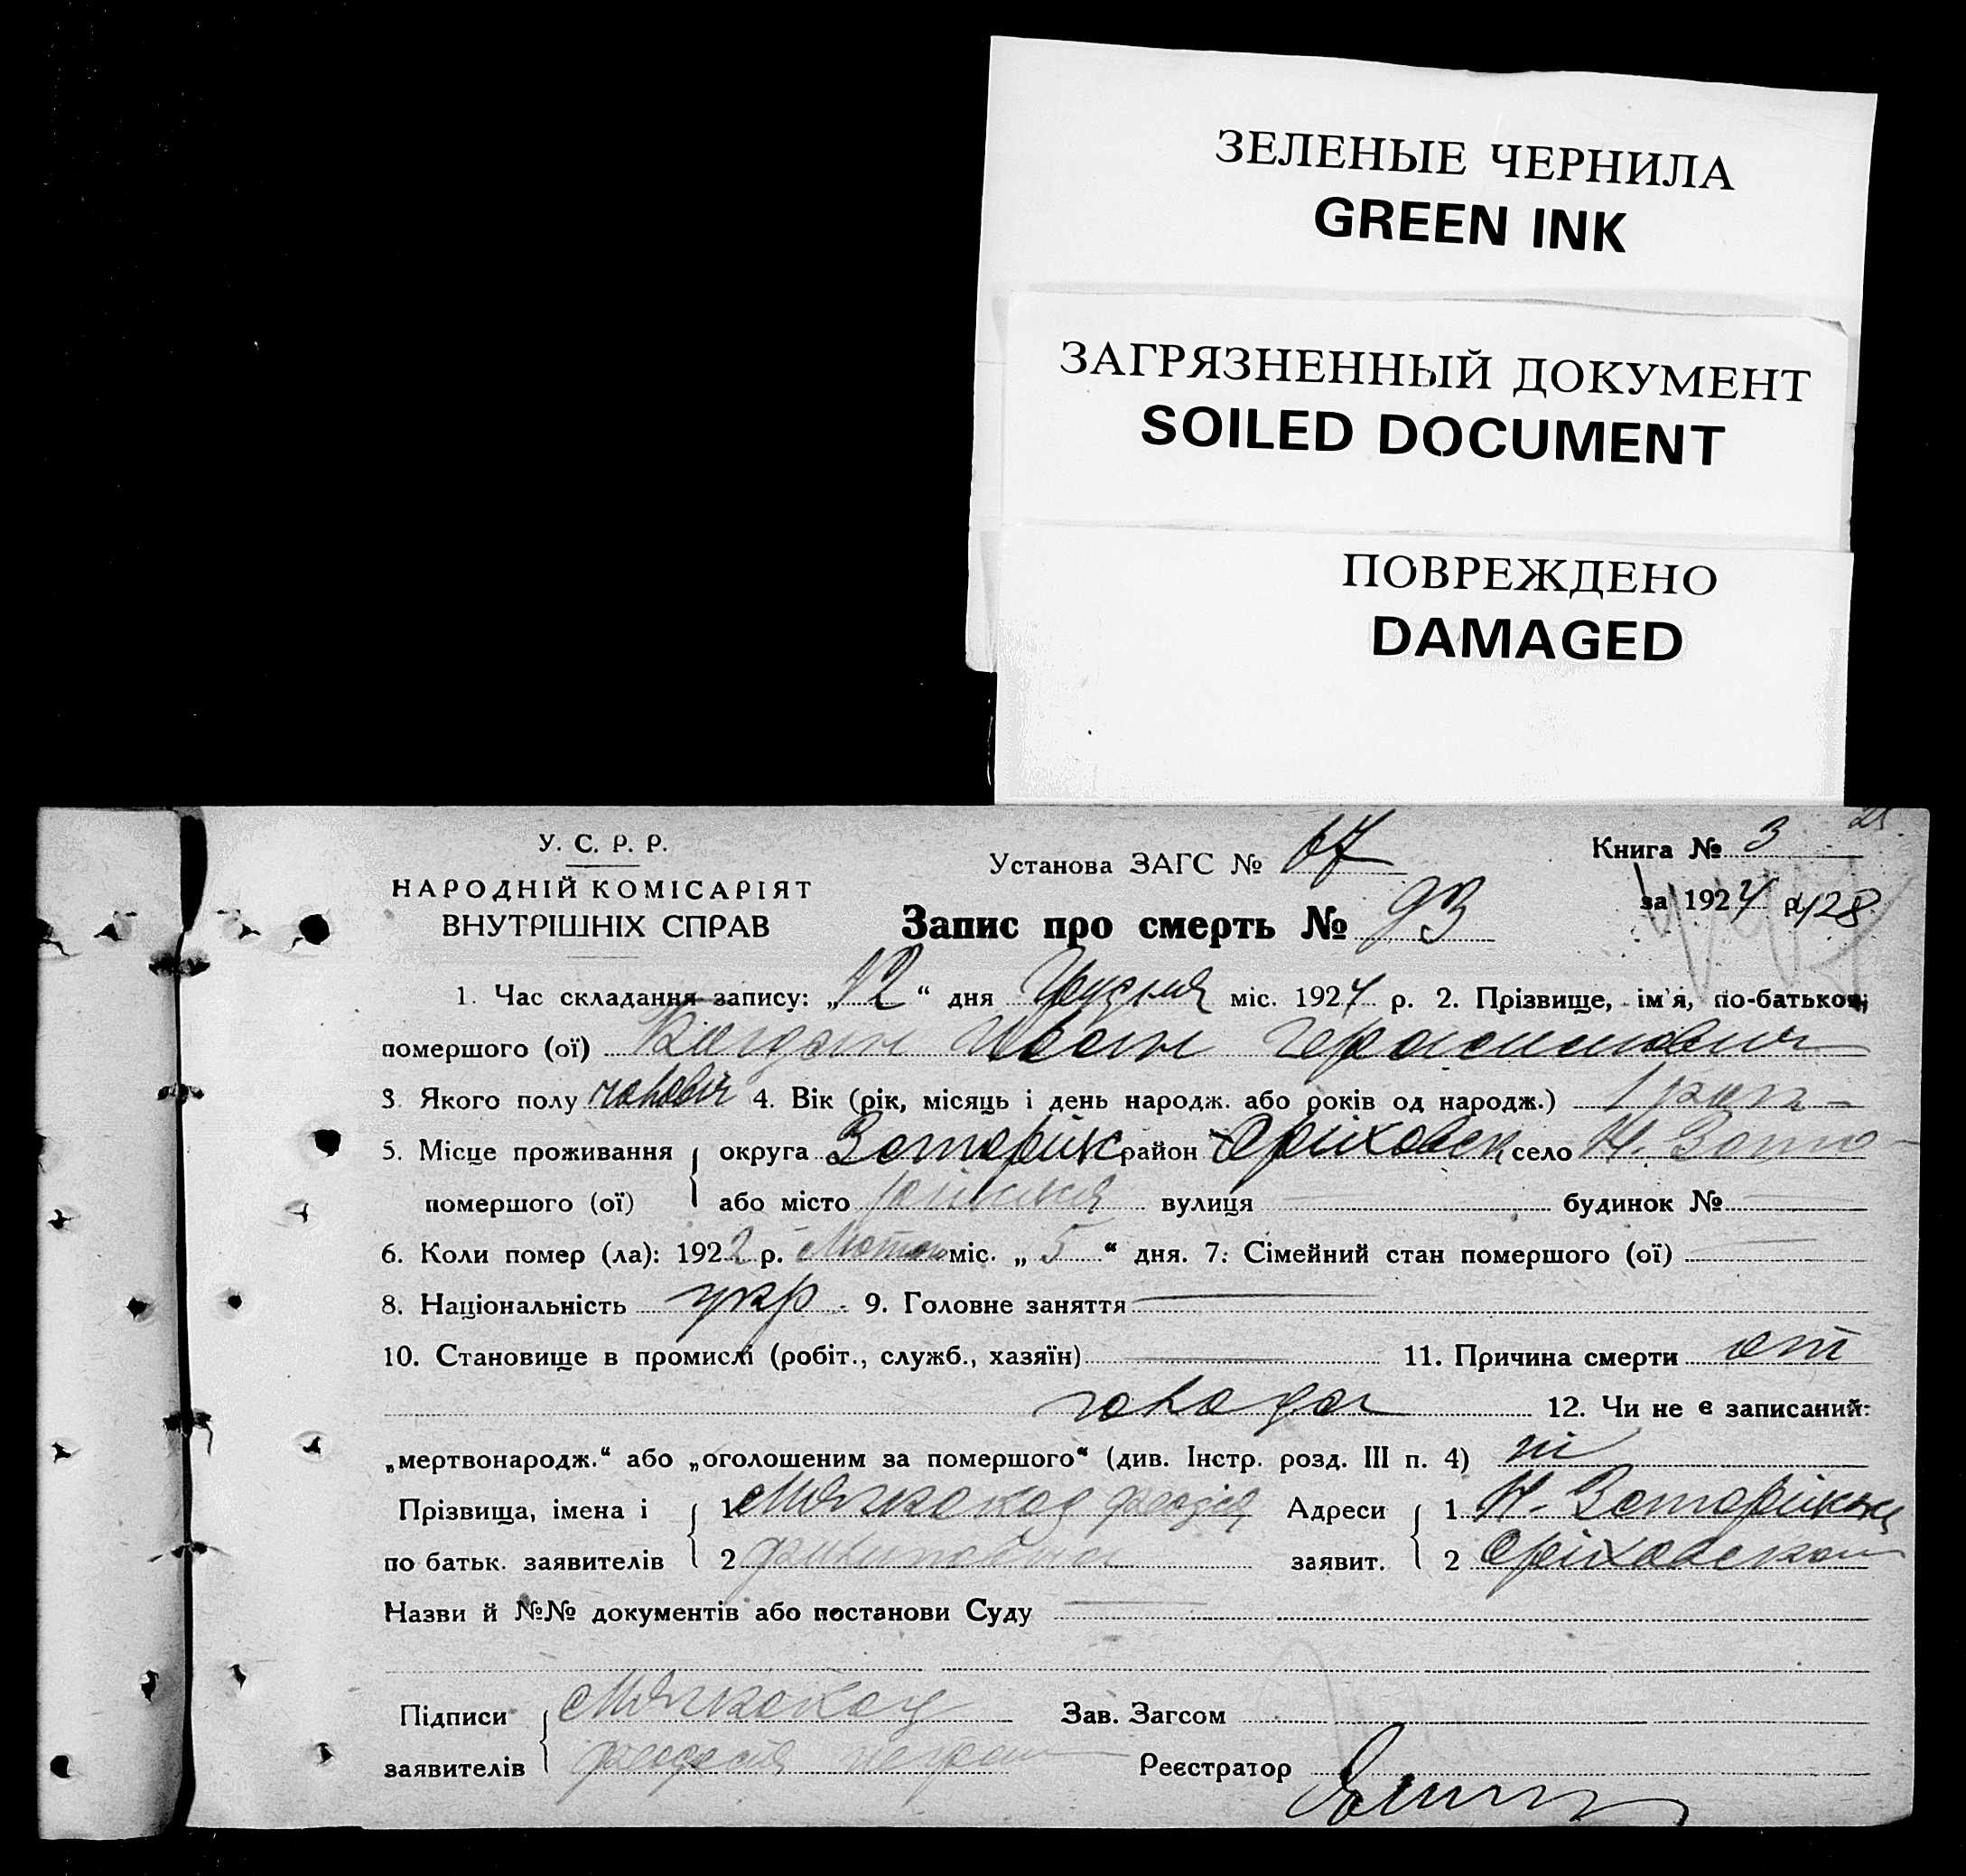 ЗЕЛЕНЫЕ ЧЕРНИЛА
GREEN INK
ЗАГРЯЗНЕННЫЙ ДОКУМЕНТ
SOILED DOCUMENT
ПОВРЕЖДЕНО
DAMAGED
У. С. Р. Р.
НАРОДНІЙ КОМІСАРІЯТ
ВНУТРІШНІХ СПРАВ
Установа ЗАГС № 67
Книга № 3
за 1924 р. 428
Запис про смерть № 93
1. Час складання запису: „12“ дня Грудня міс. 1924 р. 2. Прізвище, ім'я, по-батькові
помершого (ої) Иван Герасимович
3 Якого полу чоловіч 4. Вік (рік, місяць і день народж. або років од народж.) 1 рік
5. Місце проживання округа Запоріжс район Оріховск село Н. Запо-
помершого (ої) або місто ріжжя вулиця — будинок № —
6. Коли помер (ла): 1922 р. Лютого міс. „5“ дня. 7. Сімейний стан помершого (ої) —
8. Національність укр. 9. Головне заняття —
10. Становище в промислі (робіт., служб., хазяїн) — 11. Причина смерти от
голода 12. Чи не є записаний:
„мертвонародж.“ або „оголошеним за помершого“ (див. Інстр. розд. III п. 4) ні
Прізвища, імена і 1 Адреси 1 Н. Запоріжжя
по батьк. заявителів 2 заявит. 2 Оріховског
Назви й №№ документів або постанови Суду —
Підписи Зав. Загсом
заявителів Реєстратор